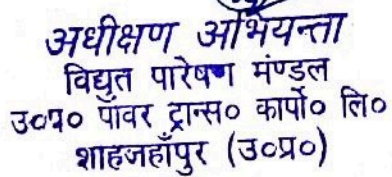 अधीक्षण अभियन्ता
विद्युत पारेषण मण्डल
उ०प्र० पॉवर ट्रान्स० कार्पो० लि०
शाहजहाँपुर (उ०प्र०)